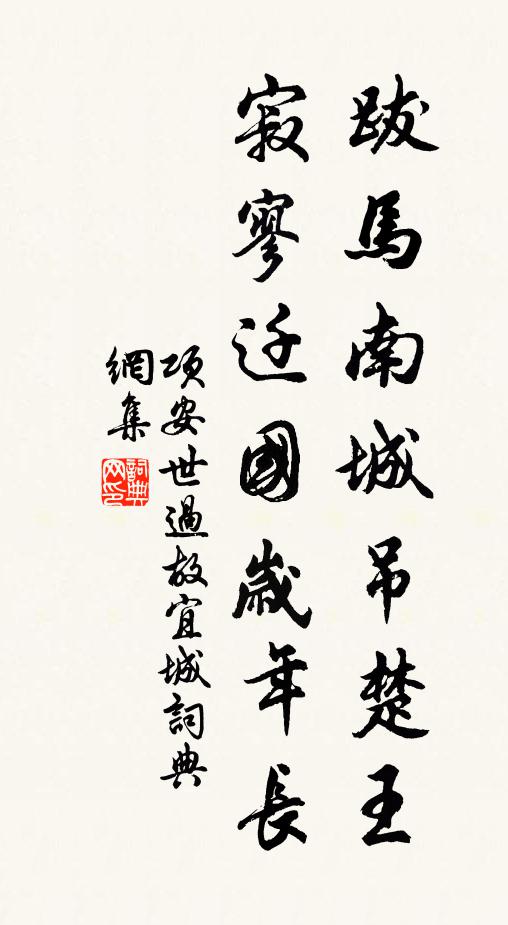 跋馬南城吊楚王
寂寥迁國歲年長
項安世過故宜城詞典
網集
詞典
网印